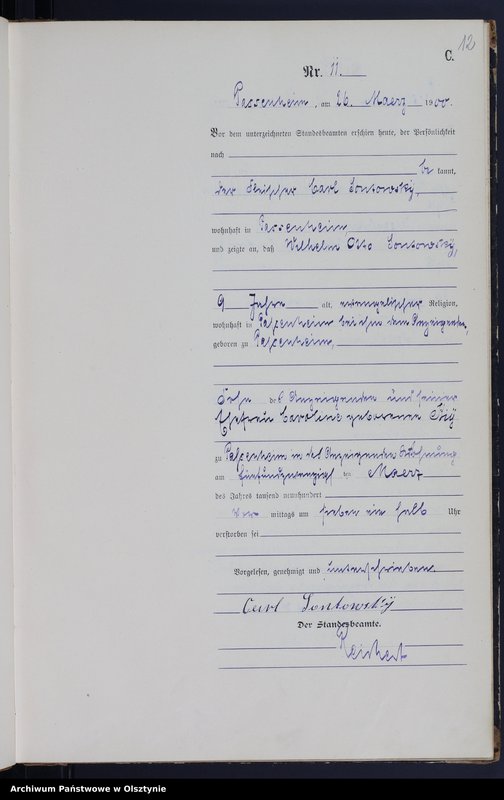 12
C.
Nr. 11.
Passenheim, am 26. Maerz 1900.
Vor dem unterzeichneten Standesbeamten erschien heute, der Persönlichkeit
nach
be kannt,
der Fleischer Carl Sontowsky,
wohnhaft in Passenheim
und zeigte an, daß Wilhelm Otto Sontowsky,
9 Jahre alt, evangelischer Religion,
wohnhaft in Passenheim bei ihm dem Anzeigenden,
geboren zu Passenheim,
Sohn des Anzeigenden und seiner
Ehefrau Caroline geborenen
zu Passenheim in des Anzeigenden Wohnung
am fünfundzwanzigsten Maerz
des Jahres tausend neunhundert
mittags um sieben ein halb Uhr
verstorben sei
Vorgelesen, genehmigt und unterschrieben.
Carl Sontowsky
Der Standesbeamte.
Reichert
Archiwum Państwowe w Olsztynie